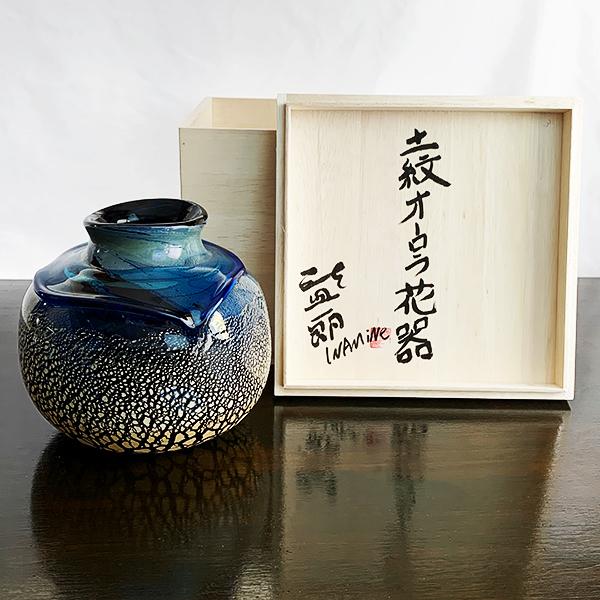 土紋オーロラ花器
盛一郎
INAMiNE